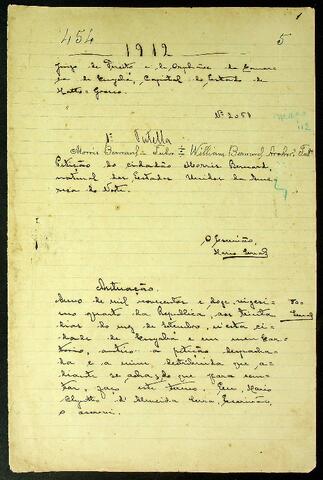 1
454
1912
5
Juizo de Direito e de Orphãos da Comarca
de Cuyabá, Capital do Estado de
Matto-Grosso.
Nº 2051
março
912
Tutella
Morris Bernard William Bernard
Petição do cidadão Morris Bernard,
natural dos Estados Unidos da Ame
rica do Norte.
O Escrivão,
Autuação.
Anno de mil novecentos e doze, vigesi
mo quarto da Republica, aos trinta
dias do mez de Setembro, n'esta ci
dade de Cuyabá e em meu Car
torio, autuo a petição despacha
da e a mim distribuida que a
diante se acha, do que para cons
tar, faço este termo. Eu, Mario
d'Almeida Serra, Escrivão,
o escrevi.